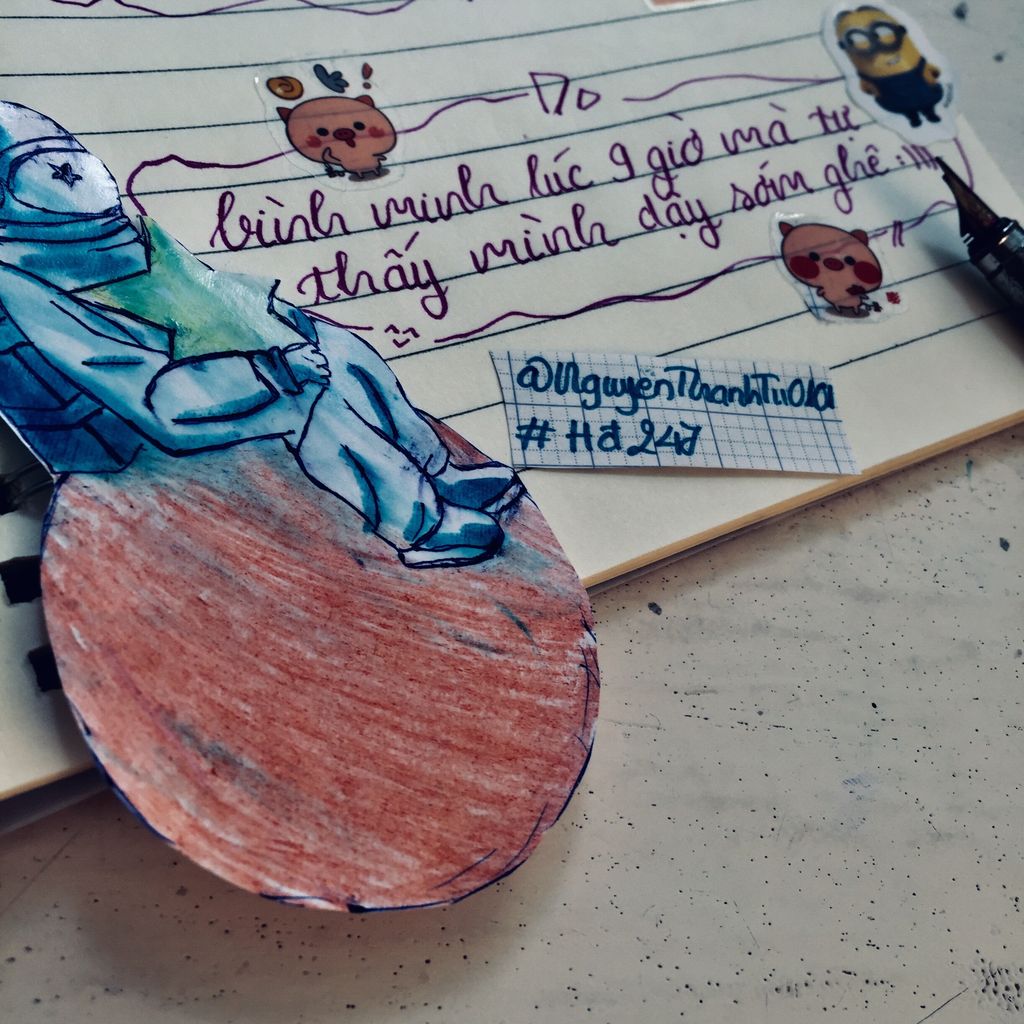 bình minh lúc 9 giờ mà tự
thấy mình dậy sớm ghê :)))
@NguyenThanhTu01a
# Hđ 247